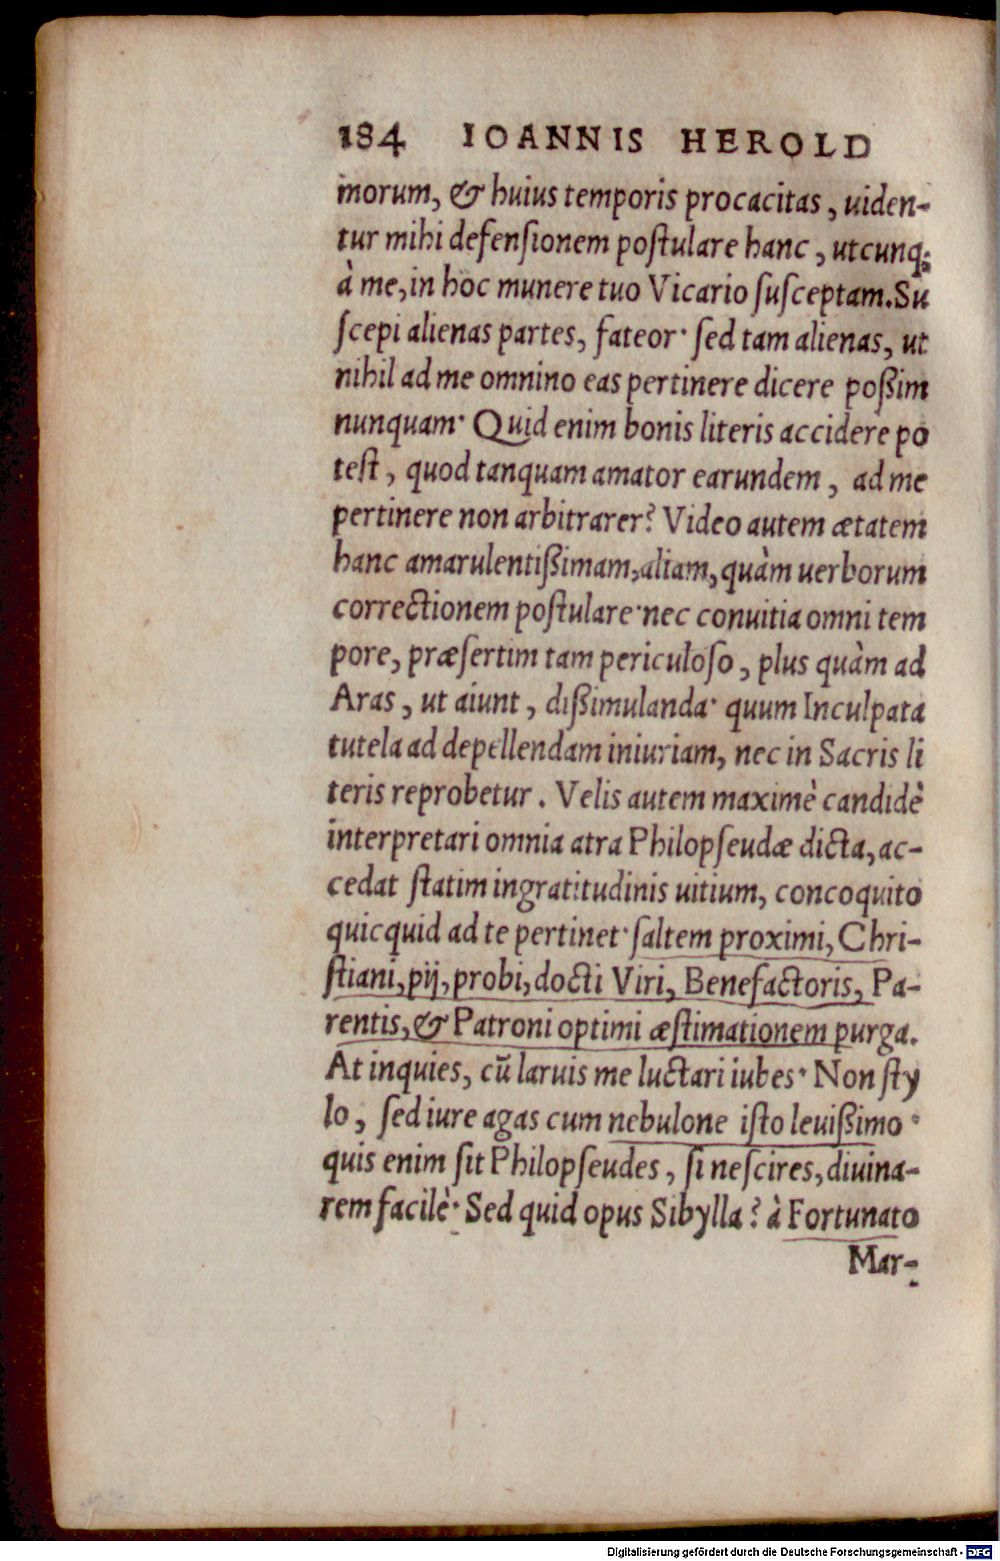 184 IOANNIS HEROLD
morum, & huius temporis procacitas, uiden-
tur mihi defenſionem poſtulare hanc, utcunq;
à me, in hoc munere tuo Vicario ſuſceptam. Su
ſcepi alienas partes, fateor· ſed tam alienas, ut
nihil ad me omnino eas pertinere dicere poßim
nunquam· Quid enim bonis literis accidere po
teſt, quod tanquam amator earundem, ad me
pertinere non arbitrarer? Video autem ætatem
hanc amarulentißimam, aliam, quàm uerborum
correctionem poſtulare· nec conuitia omni tem
pore, præſertim tam periculoſo, plus quàm ad
Aras, ut aiunt, dißimulanda· quum Inculpata
tutela ad depellendam iniuriam, nec in Sacris li
teris reprobetur. Velis autem maximè candidè
interpretari omnia atra Philopſeudæ dicta, ac-
cedat ſtatim ingratitudinis uitium, concoquito
quicquid ad te pertinet· ſaltem proximi, Chri-
ſtiani, pij, probi, docti Viri, Benefactoris, Pa-
rentis, & Patroni optimi æſtimationem purga.
At inquies, cū laruis me luctari iubes· Non ſty
lo, ſed iure agas cum nebulone iſto leuißimo·
quis enim ſit Philopſeudes, ſi neſcires, diuina-
rem facilè· Sed quid opus Sibylla? à Fortunato
Mar-
Digitalisierung gefördert durch die Deutsche Forschungsgemeinschaft - DFG